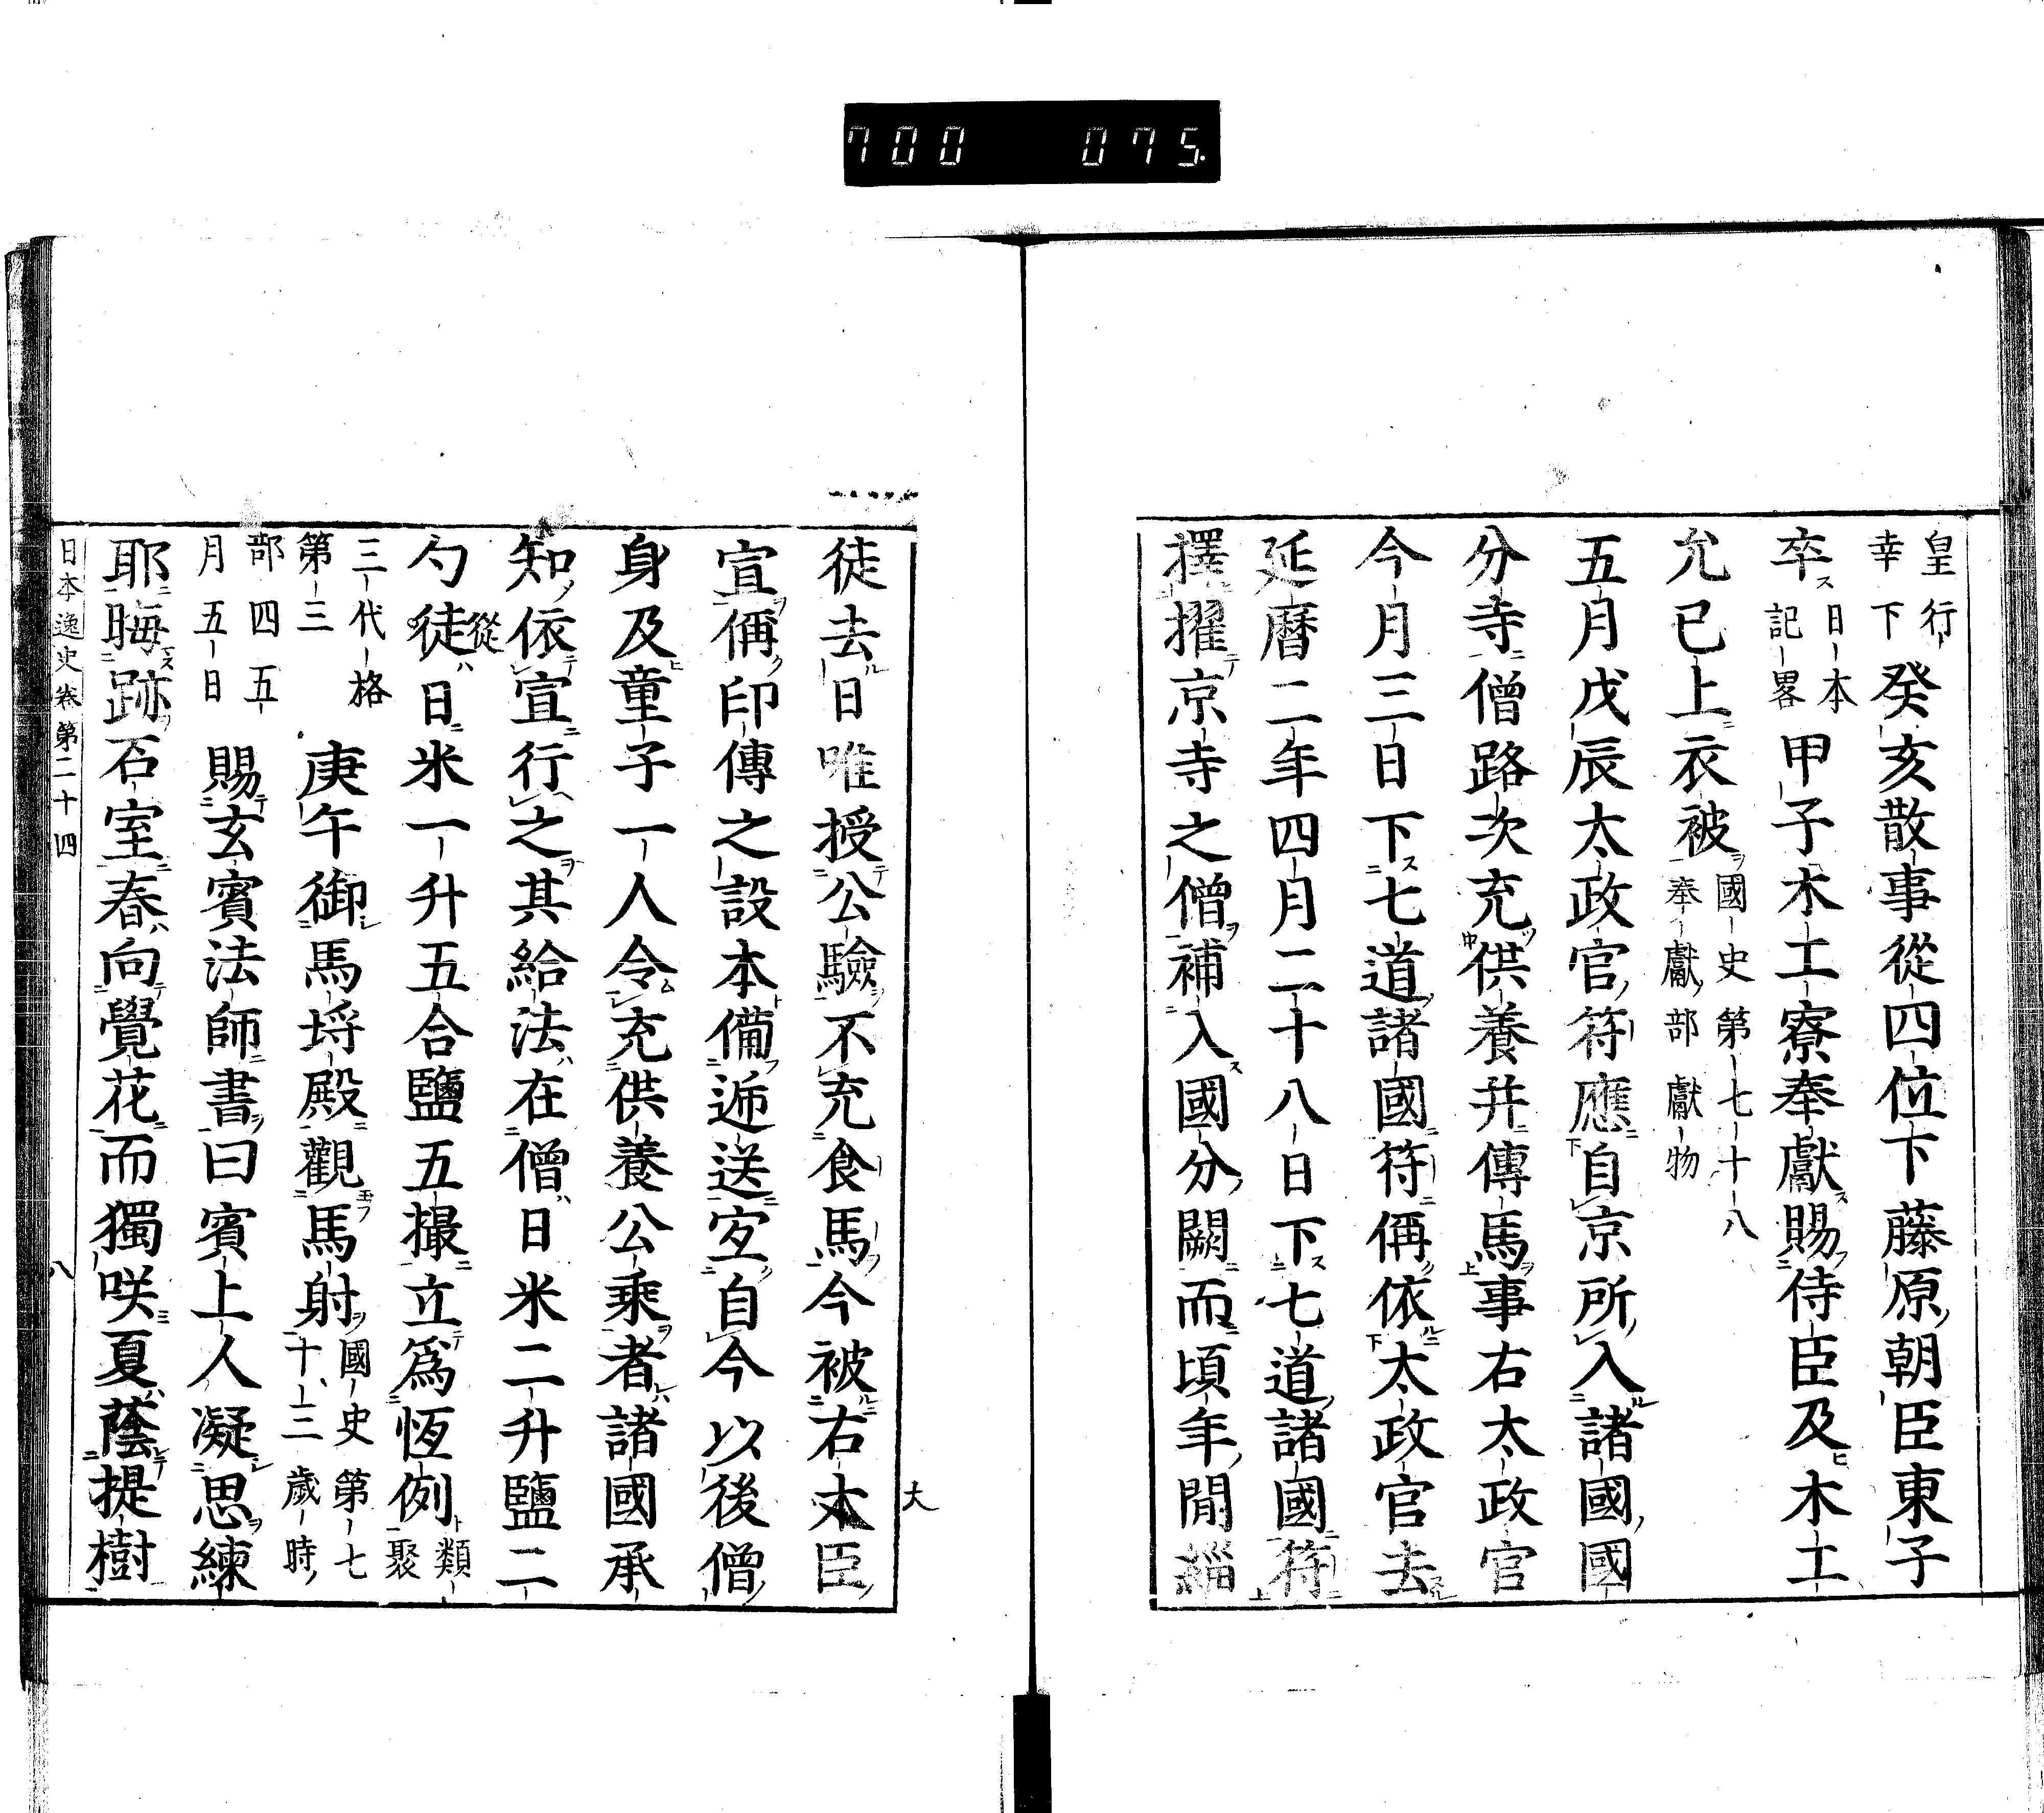 700 075
皇行
幸下
癸亥散事從四位下藤原朝臣東子
卒日本記畧甲子木工寮奉獻賜侍臣及木工
允已上衣被國史第七十八奉獻部獻物
五月戊辰太政官符應自京所入諸國國
分寺僧路次充供養幷傳馬事右太政官
今月三日下七道諸國符偁依太政官去
延曆二年四月二十八日下七道諸國符
擇擢京寺之僧補入國分闕而頃年間緇
徒去日唯授公驗不充食馬今被右大臣
大
宣偁印傳之設本備逓送宐自今以後僧
身及童子一人令充供養公乘者諸國承
知依宣行之其給法在僧日米二升鹽二
勺徒日米一升五合鹽五撮立爲恆例類聚
從
三代格
第三
庚午御馬埒殿觀馬射國史第七十二歲時
部四五
月五日
賜玄賓法師書曰賓上人凝思練
耶晦跡石室春向覺花而獨咲夏蔭提樹
日本逸史卷第二十四 八